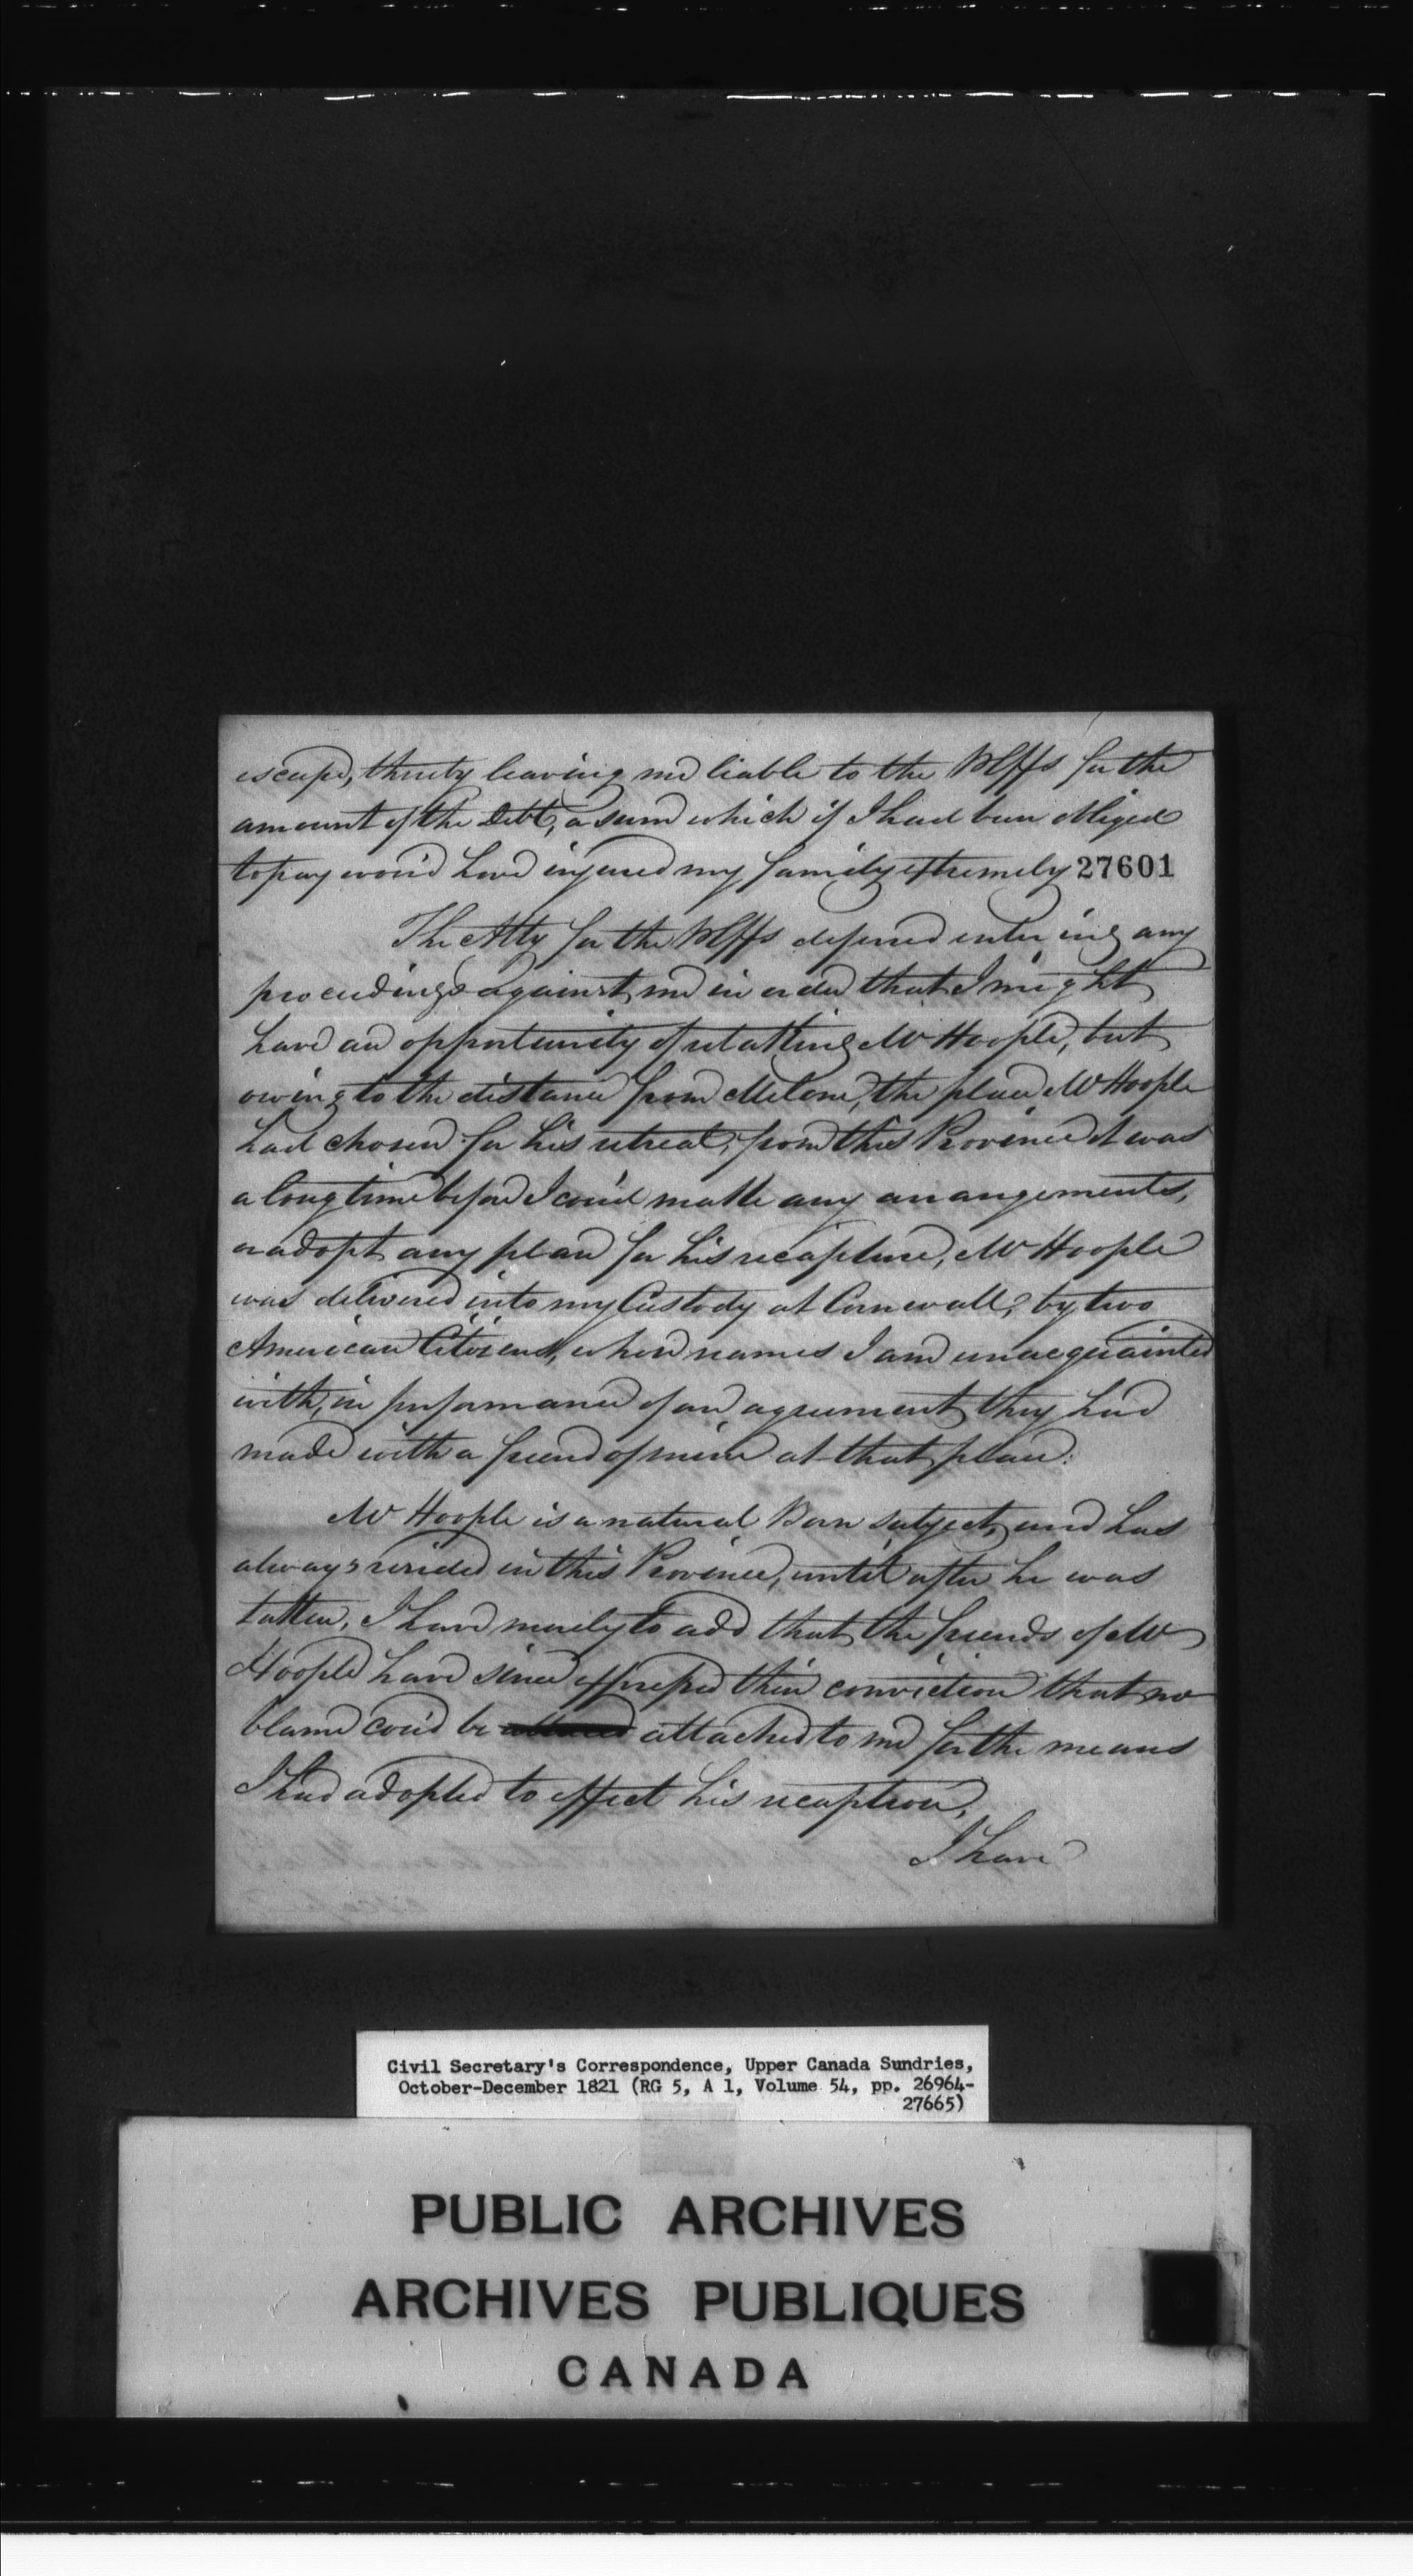 escape, thereby leaving me liable to the Plffs for the
amount of the Debt, a sum which if I had been obliged
to pay wou'd have injured my family extremely 27601
The Atty for the Plffs deferred entering any
proceedings against me in order that I might
have an opportunity of retaking Mr Hoople, but
owing to the distance from Malone, the place Mr Hoople
had chosen for his retreat, from this Province it was
a long time before I cou'd make any arrangements,
or adopt any plan for his recapture, Mr Hoople
was delivered into my Custody at Cornwall, by two
American Citizens, whose names I am unacquainted
with, in performance of an agreement they had
made with a friend of mine at that place.
Mr Hoople is a natural Born subject, and has
always resided in this Province, until after he was
taken, I have merely to add that the friends of Mr
Hoople have since expressed their conviction that no
blame cou'd be attached to me for the means
I had adopted to effect his recaption,
I have
Civil Secretary's Correspondence, Upper Canada Sundries,
October-December 1821 (RG 5, A 1, Volume 54, pp. 26964-
27665)
PUBLIC ARCHIVES
ARCHIVES PUBLIQUES
CANADA